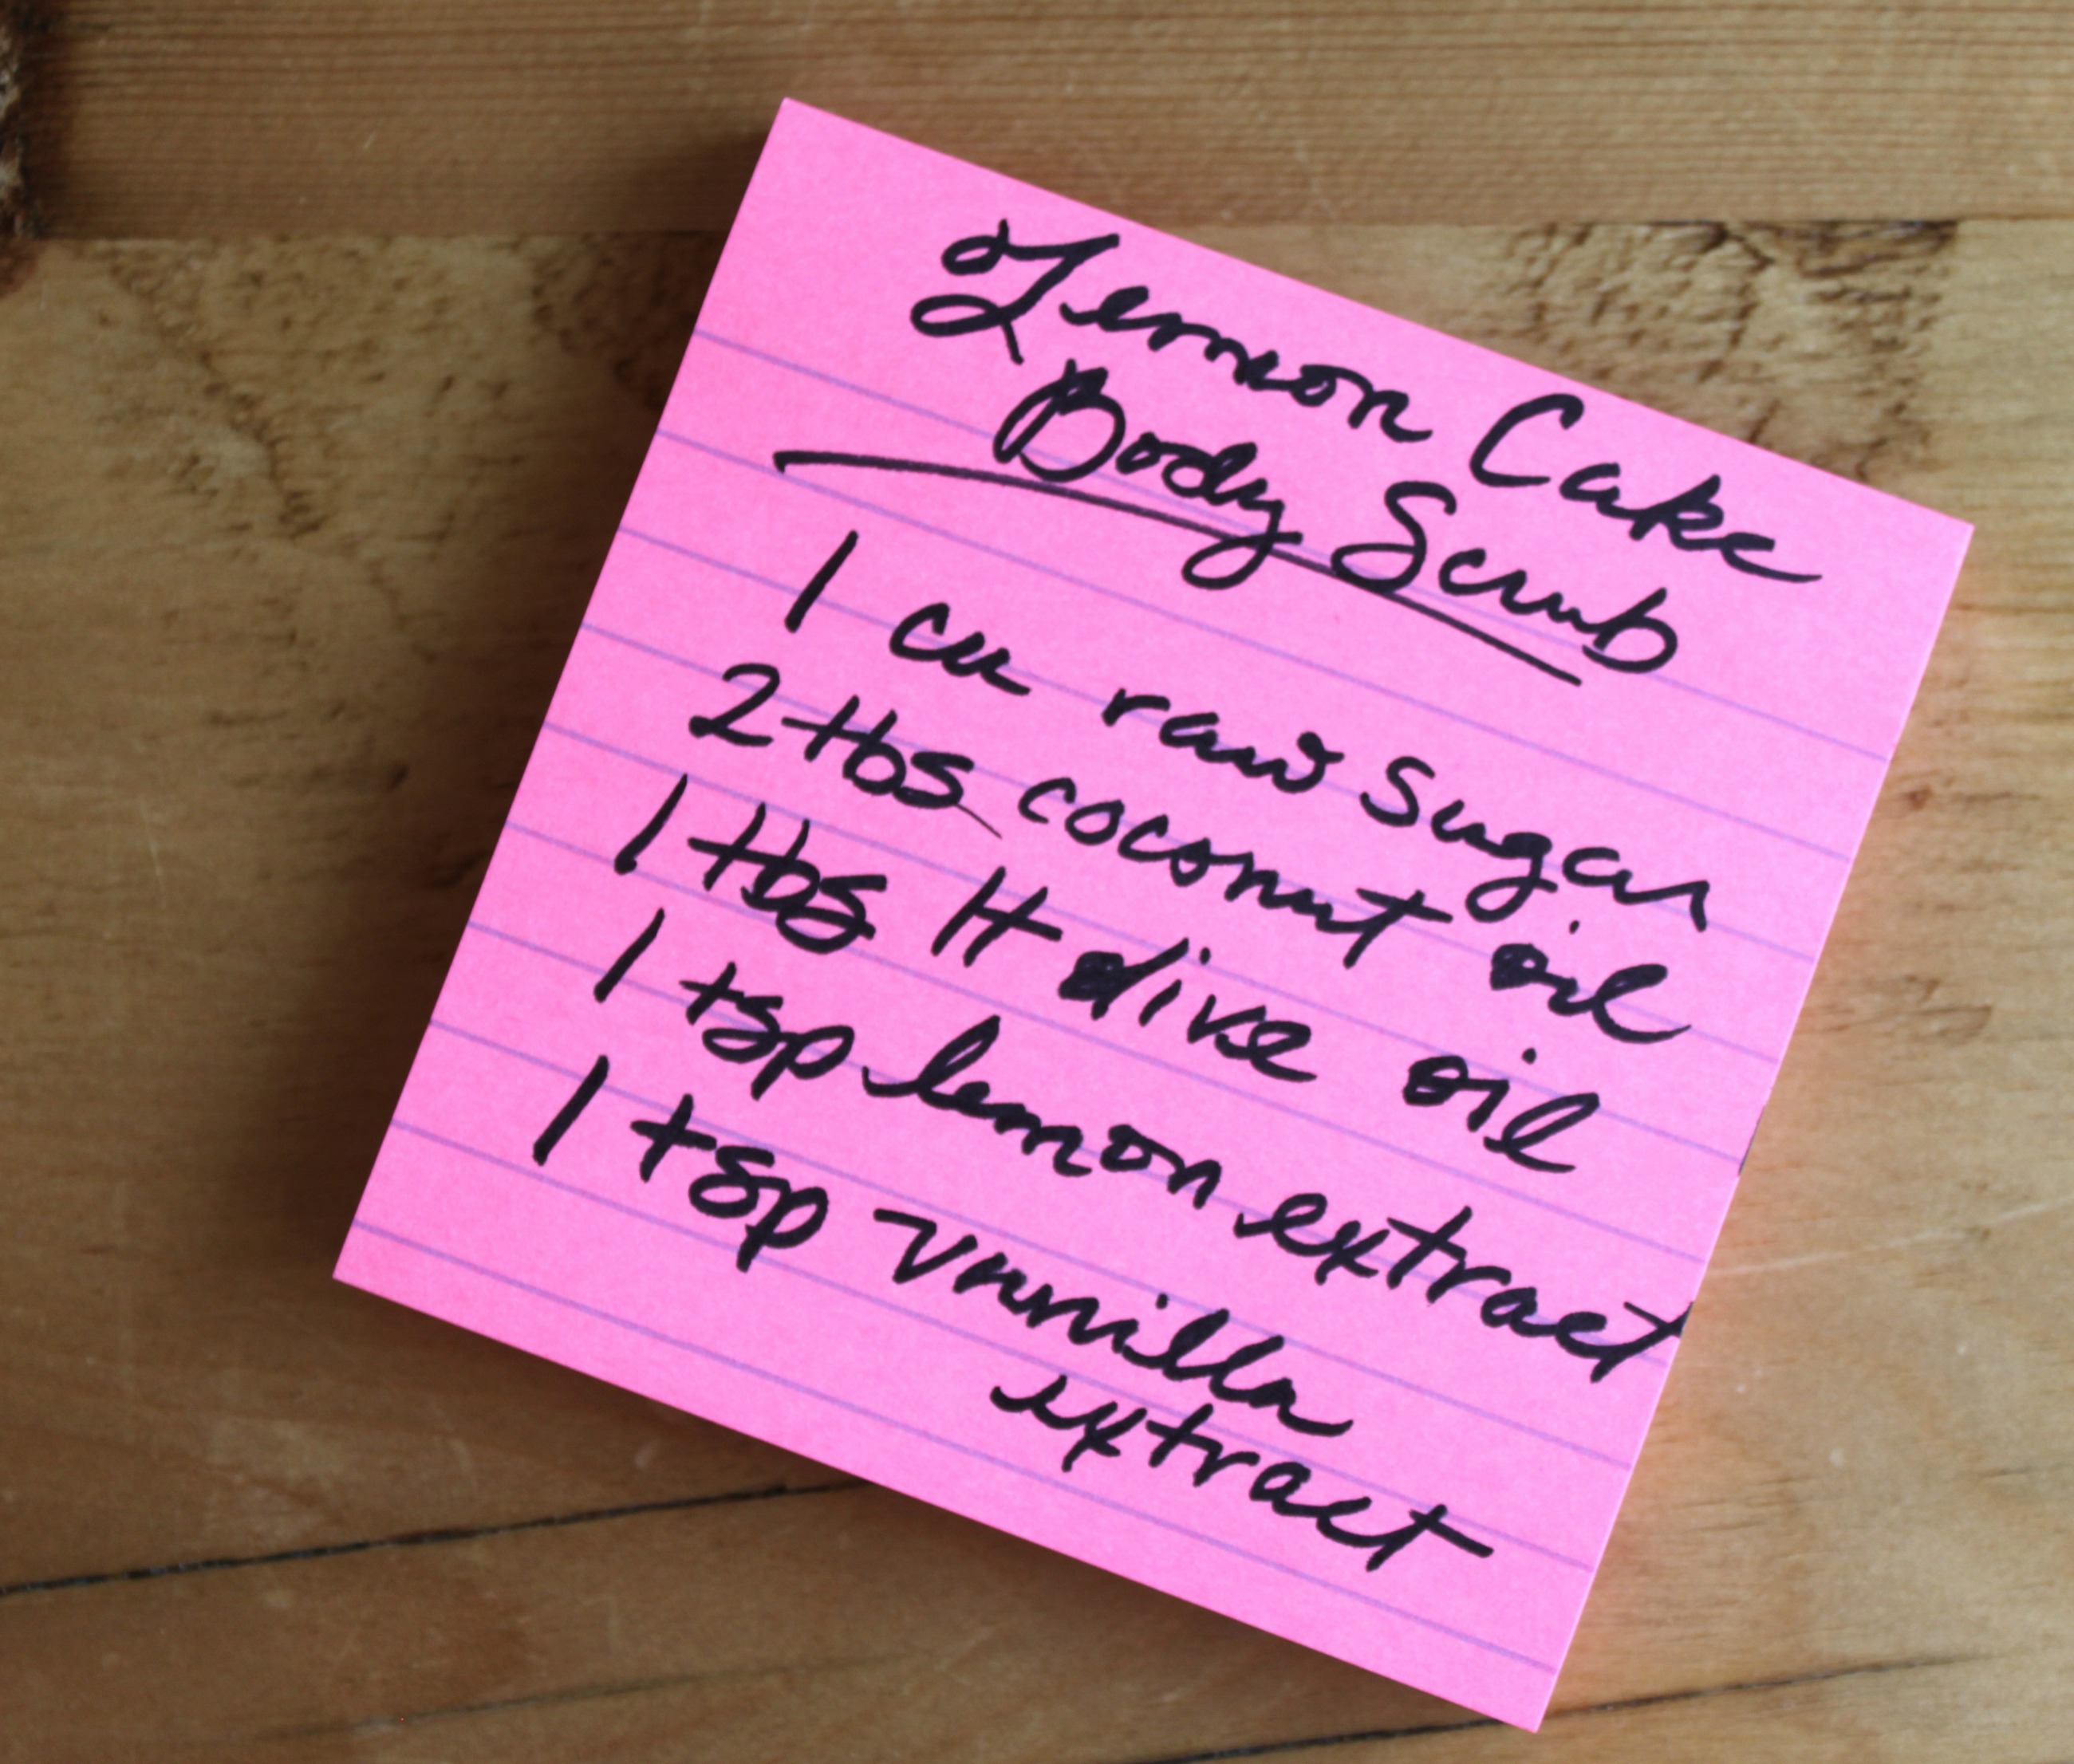 Lemon Cake
Body Scrub
1 cu raw sugar
2 tbs coconut oil
1 tbs lt olive oil
1 tsp lemon extract
1 tsp vanilla
extract